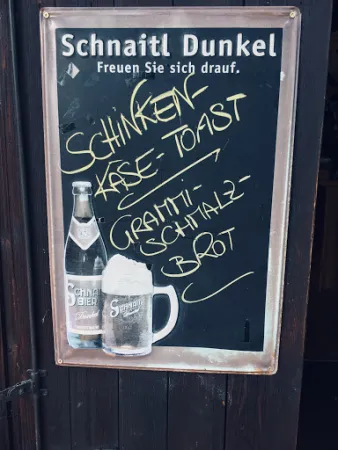 Schnaitl Dunkel
Freuen Sie sich drauf.
SCHINKEN-
KÄSE-TOAST
GRAMMI-
SCHMALZ-
BROT
SCHNAITL
BIER
Dunkel
SCHNAITL